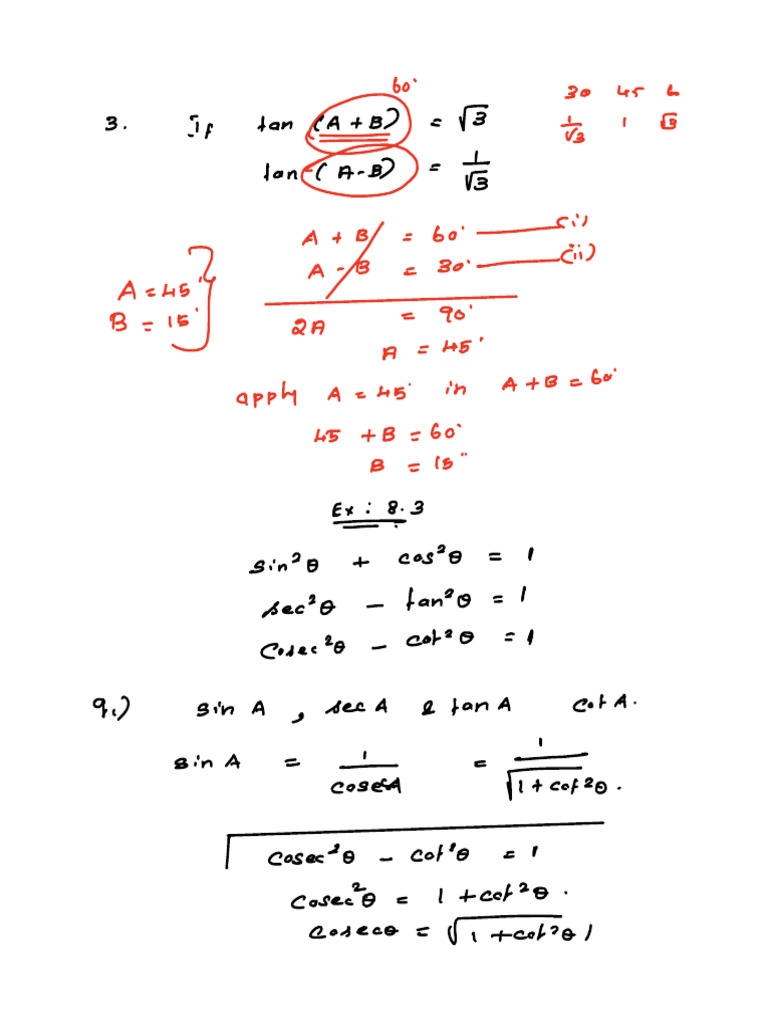 60°
30 45 6
3. If tan (A + B) = √3
1/√3 1 √3
tan (A-B) = 1/√3
A + B = 60° — (i)
A - B = 30° — (ii)
A = 45°
B = 15°
2A = 90°
A = 45°
apply A = 45° in A + B = 60°
45 + B = 60°
B = 15°
Ex : 8.3
sin²θ + cos²θ = 1
sec²θ - tan²θ = 1
Cosec²θ - cot²θ = 1
q.) sin A , sec A & tan A cot A.
sin A = 1/cosecA = 1/√1 + cot²θ.
cosec²θ - cot²θ = 1
cosec²θ = 1 + cot²θ.
cosecθ = √1 + cot²θ